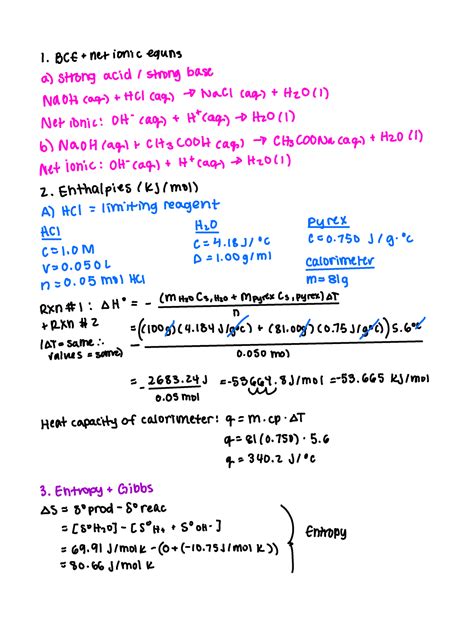 1. BCE + net ionic equns
a) strong acid / strong base
NaOH (aq) + HCl (aq) → NaCl (aq) + H2O (l)
Net ionic: OH⁻ (aq) + H⁺ (aq) → H2O (l)
b) NaOH (aq) + CH3COOH (aq) → CH3COONa (aq) + H2O (l)
Net ionic: OH⁻ (aq) + H⁺ (aq) → H2O (l)
2. Enthalpies (KJ/mol)
A) HCl = limiting reagent
HCl H2O Pyrex
C = 1.0 M C = 4.18 J/°C C = 0.750 J/g·°C
V = 0.050 L D = 1.00 g/ml calorimeter
n = 0.05 mol HCl m = 81g
Rxn #1: ΔH° = - (m H2O Cs, H2O + m pyrex Cs, pyrex) ΔT / n
+ Rxn #2
(ΔT = same ∴ values = same)
= - ((100g)(4.184 J/g°C) + (81.00g)(0.75 J/g°C)) 5.6°C / 0.050 mol
= - 2683.24 J / 0.05 mol = -53664.8 J/mol = -53.665 KJ/mol
Heat capacity of calorimeter: q = m·cp·ΔT
q = 81 (0.750) · 5.6
q = 340.2 J/°C
3. Entropy + Gibbs
ΔS = S°prod - S°reac
= [S°H2O] - [S°H+ + S°OH-]
= 69.91 J/mol K - (0 + (-10.75 J/mol K))
= 80.66 J/mol K
Entropy